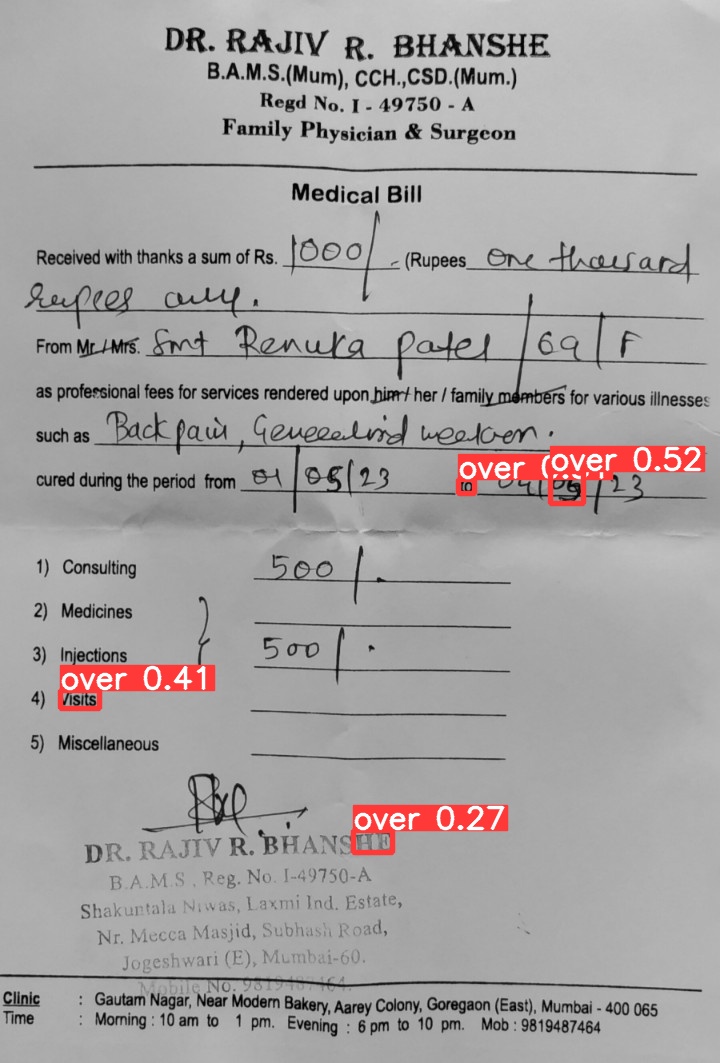 DR. RAJIV R. BHANSHE
B.A.M.S.(Mum), CCH.,CSD.(Mum.)
Regd No. I - 49750 - A
Family Physician & Surgeon
Medical Bill
Received with thanks a sum of Rs. 1000/- (Rupees one thousand
rupees only.
From Mr./Mrs. Smt Renuka Patel / 69 / F
as professional fees for services rendered upon him / her / family members for various illnesses
such as Back pain,
cured during the period from 01/05/23 to /05/23
over over 0.52
1) Consulting 500/-
2) Medicines
3) Injections 500/-
over 0.41
4) Visits
5) Miscellaneous
over 0.27
DR. RAJIV R. BHANSHE
B.A.M.S , Reg. No. I-49750-A
Shakuntala Niwas, Laxmi Ind. Estate,
Nr. Mecca Masjid, Subhash Road,
Jogeshwari (E), Mumbai-60.
Mobile No. 9819487464.
Clinic : Gautam Nagar, Near Modern Bakery, Aarey Colony, Goregaon (East), Mumbai - 400 065
Time : Morning : 10 am to 1 pm. Evening : 6 pm to 10 pm. Mob : 9819487464